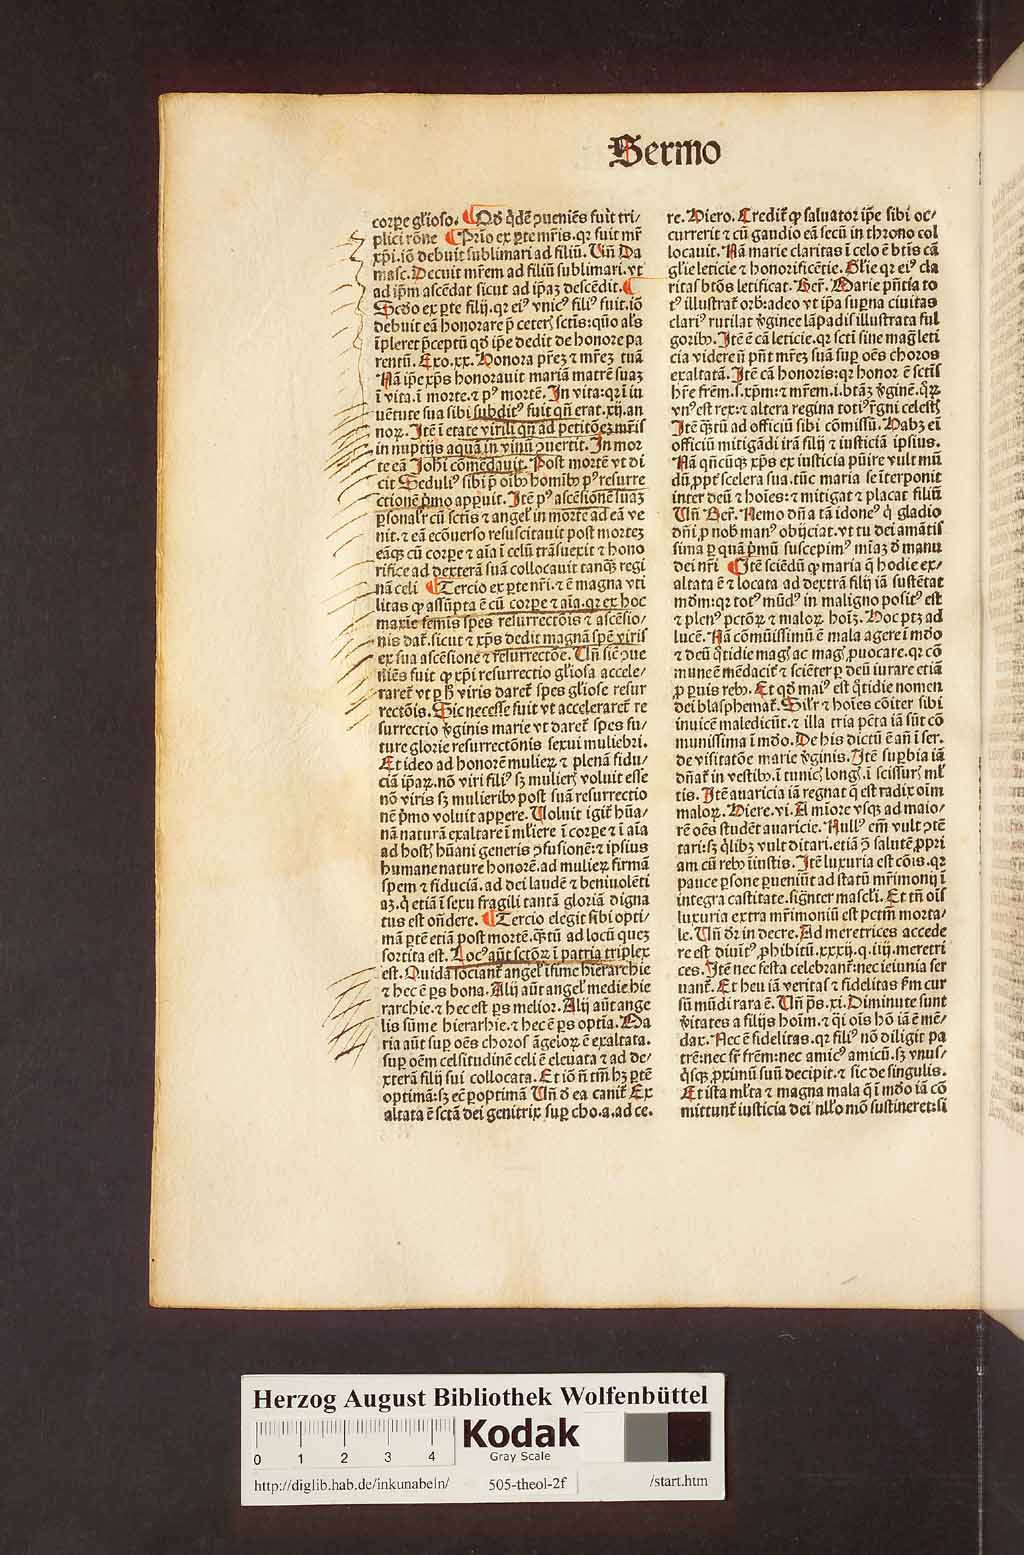 Sermo
corꝑe gl̃ioso. ¶ Qđ q̇dẽ ↄueniẽs fuit tri/
plici rõne ¶ Prio ex ꝑte mr̃is. qꝛ fuit mr̃
xp̃i. iõ debuit sublimari ad filiũ. Vñ Da
masc. Decuit mr̃em ad filiũ sublimari. vt
ad ip̃m ascẽdat sicut ad ip̃aꝫ descẽdit. ¶
Scđo ex ꝑte filij. qꝛ eiꝰ vnicꝰ filiꝰ fuit. iõ
debuit eã honorare p̃ ceteꝝ sctis: qũo al̃s
ĩpleret p̃ceptũ qđ ip̃e dedit de honore pa
rentũ. Exo. xx. Honora pr̃eꝫ ⁊ mr̃eꝫ tuã
Nã ip̃e xp̃s honorauit mariã matrẽ suaꝫ
ĩ vita. ĩ morte. ⁊ pꝰ mortẽ. In vita: qꝛ ĩ iu
uẽtute sua sibi subditꝰ fuit qñ erat. xij. an
noꝝ. Itẽ ĩ etate virili qñ ad petitõeꝫ mr̃is
in nuptijs aquã in vinũ ↄuertit. In mor
te eã Joh̃i cõmẽdauit. Post mortẽ vt di
cit Seduliꝰ sibi p̃ oĩbꝰ homĩbꝰ pꝰ resurre
ctionẽ p̃mo appuit. Itẽ pꝰ ascẽsionẽ suaꝫ
ꝑsonalr̃ cũ sctĩs ⁊ angel̃ in morte ad eã ve
nit. ⁊ eã ecõuerso resuscitauit post morteꝫ
eãqꝫ cũ corꝑe ⁊ aĩa ĩ celũ trãsuexit ⁊ hono
rifice ad dexterã suã collocauit tanqꝫ regi
nã celi ¶ Tercio ex ꝑte nr̃i. ⁊ ẽ magna vti
litas ꝙ assũpta ẽ cũ corꝑe ⁊ aĩa. qꝛ ex hoc
maxie femĩs spes resurrectõis ⁊ ascẽsio/
nis dat̃. sicut ⁊ xp̃s dedit magnã spẽ viris
ex sua ascẽsione ⁊ resurrectõe. Vñ sic̃ ↄue
niẽs fuit ꝙ xp̃i resurrectio gl̃iosa accele/
raret̃ vt ꝑ h̃ viris daret̃ spes gl̃iose resur
rectõis. Sic necesse fuit vt acceleraret̃ re
surrectio v̾ginis marie vt daret̃ spes fu/
ture glorie resurrectõnis sexui muliebri.
Et ideo ad honorẽ mulieꝝ ⁊ plenã fidu/
ciã ip̃aꝝ. nõ viri filiꝰ sꝫ mulieꝝ voluit esse
nõ viris sꝫ mulieribꝰ post suã resurrectio
nẽ p̃mo voluit apꝑere. Voluit igit̃ hũa/
nã naturã exaltare ĩ ml̃iere ĩ corꝑe ⁊ ĩ aĩa
ad hostꝭ hũani generis ↄfusionẽ: ⁊ ipsius
humane nature honorẽ. ad mulieꝝ firmã
spem ⁊ fiduciã. ad dei laudẽ ⁊ beniuolẽti
aꝫ. q̇ etiã ĩ sexu fragili tantã gloriã digna
tus est oñdere. ¶ Tercio elegit sibi opti/
mã ꝑtẽ etiã post mortẽ. qꝫtũ ad locũ queꝫ
sortita est. Locꝰ aũt sctõꝝ ĩ patria triplex
est. Quidã sociant̃ angel̃ ĩfime hierarchie
⁊ hec ẽ ꝑs bona. Alij aũt angel̃ medie hie
rarchie. ⁊ hec est ꝑs melior. Alij aũt ange
lis sũme hierarhie. ⁊ hec ẽ ꝑs optĩa. Ma
ria aũt suꝑ oẽs choros ãgeloꝝ ẽ exaltata.
suꝑ oẽm celsitudinẽ celi ẽ eleuata ⁊ ad de/
xterã filij sui collocata. Et iõ ñ tm̃ hꝫ ꝑtẽ
optimã: sꝫ eẽ ꝑoptimã Vñ đ ea canit̃ Ex
altata ẽ sctã dei genitrix suꝑ cho. a. ad ce.
re. Hiero. Credit̃ ꝙ saluator ip̃e sibi oc/
currerit ⁊ cũ gaudio eã secũ in throno col
locauit. Nã marie claritas ĩ celo ẽ btĩs cã
gl̃ie leticie ⁊ honorificẽtie. Gl̃ie qꝛ eiꝰ cla
ritas btõs letificat. Ber̃. Marie pñtia to
tꝰ illustrat̃ orb: adeo vt ip̃a suꝑna ciuitas
clariꝰ rutilat v̾ginee lãpadis illustrata ful
goribꝰ. Itẽ ẽ cã leticie. qꝛ scti sine mag̃ leti
cia videre ñ pñt mr̃eꝫ suã suꝑ oẽs choros
exaltatã. Itẽ cã honoris: qꝛ honor ẽ sctĩs
hr̃e frẽm. s. xp̃m: ⁊ mr̃em. i. btãꝫ v̾ginẽ. q̃ꝝ
vnꝰ est rex: ⁊ altera regina totiꝰ r̃gni celestꝭ
Itẽ qꝫtũ ad officiũ sibi cõmissũ. Habꝫ eĩ
officiũ mitigãdi irã filij ⁊ iusticiã ipsius.
Nã qñcũqꝫ xp̃s ex iusticia pũire vult mũ
dũ ꝓpt̃ scelera sua. tũc maria se ĩterponit
inter deũ ⁊ hoĩes: ⁊ mitigat ⁊ placat filiũ
Vñ Ber̃. Nemo dñ̃a tã idoneꝰ q̇ gladio
dñi ꝓ nob̃ manꝰ obijciat. vt tu dei amãtis
sima ꝑ quã p̃mũ suscepimꝰ mĩaꝫ đ manu
dei nr̃i ¶ Itẽ sciẽdũ ꝙ maria q̃ hodie ex/
altata ẽ ⁊ locata ad dextrã filij iã sustẽtat
mđm: qꝛ totꝰ mũdꝰ in maligno positꝰ est
⁊ plenꝰ pctõꝝ ⁊ maloꝝ hoĩꝫ. Hoc ptꝫ ad
lucẽ. Nã cõmũissimũ ẽ mala agere ĩ mđo
⁊ deũ q̃tidie magꝭ ac magꝭ ꝓuocare. qꝛ cõ
mune ẽ mẽdacit̃ ⁊ sciẽter ꝑ deũ iurare etiã
ꝓ ꝑuis rebꝰ. Et qđ maiꝰ est q̃tidie nomen
dei blasphemat̃. Silr̃ ⁊ hoĩes cõiter sibi
inuicẽ maledicũt. ⁊ illa tria pctã iã sũt cõ
munissima ĩ mđo. De his dictũ ẽ añ ĩ ser.
de visitatõe marie v̾ginis. Itẽ suꝑbia iã
dñat̃ in vestibꝰ. ĩ tunicꝭ longꝭ. ĩ scissurꝭ ml̃
tis. Itẽ auaricia iã regnat q̃ est radix oĩm
maloꝝ. Hiere. vi. A mĩore vsqꝫ ad maio/
rẽ oẽs studẽt auaricie. Nullꝰ em̃ vult ↄtẽ
tari: sꝫ q̇libꝫ vult ditari. etiã ↄ̃ salutẽ ꝓpri
am cũ rebꝰ iĩustis. Itẽ luxuria est cõis. qꝛ
pauce ꝑsone ꝑueniũt ad statũ mr̃imonij ĩ
integra castitate. sig̃nter mascl̃i. Et tñ oĩs
luxuria extra mr̃imoniũ est pctm̃ morta/
le. Vñ đr in decre. Ad meretrices accede
re est diuitꝰ ꝓhibitũ. xxxij. q. iiij. meretri
ces. Itẽ nec festa celebrant̃: nec ieiunia ser
uant̃. Et heu iã veritas ⁊ fidelitas s̃m cur
sũ mũdi rara ẽ. Vñ ps̃. xi. Diminute sunt
v̾itates a filijs hoĩm. ⁊ q̃i oĩs hõ iã ẽ mẽ/
dax. Nec ẽ fidelitas. qꝛ filiꝰ nõ diligit pa
trẽ: nec fr̃ frẽm: nec amicꝰ amicũ. sꝫ vnus/
q̃sqꝫ ꝓximũ suũ decipit. ⁊ sic de singulis.
Et ista ml̃ta ⁊ magna mala q̃ ĩ mđo iã cõ
mittunt̃ iusticia dei nl̃lo mõ sustineret: si
Herzog August Bibliothek Wolfenbüttel
0 1 2 3 4
Kodak
Gray Scale
http://diglib.hab.de/inkunabeln/ 505-theol-2f /start.htm